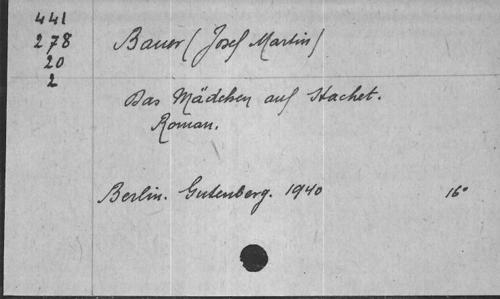 441
278
20
2
Bauer (Josef Martin)
Das Mädchen auf Stachet.
Roman.
Berlin. Gutenberg. 1940 16°